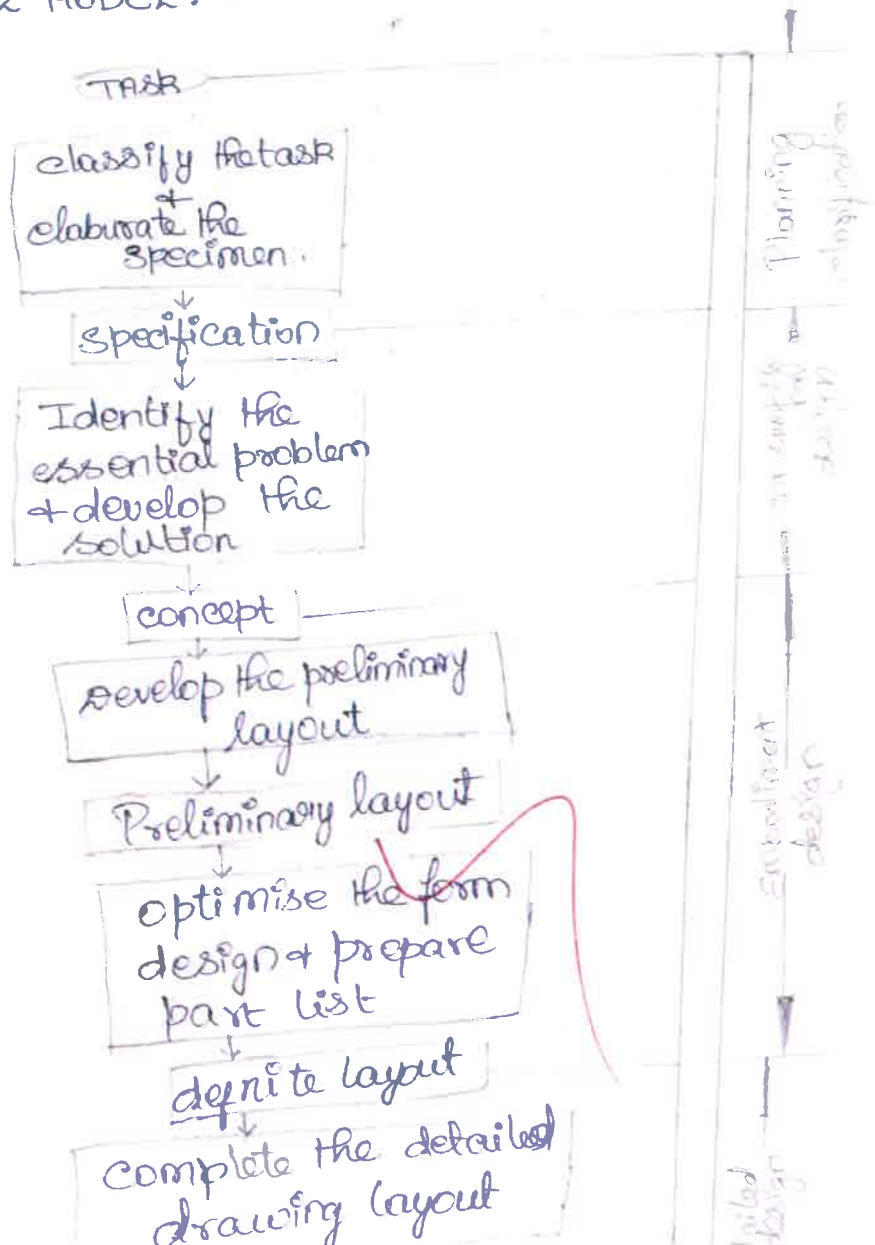 MODEL:
TASK
classify the task
+
elaburate the
specimen.
specification
Identify the
essential problem
+ develop the
solution
concept
Develop the preliminary
layout
Preliminary layout
optimise the form
design + prepare
part list
definite layout
complete the detailed
drawing layout
Planning
design
Embodiment
design